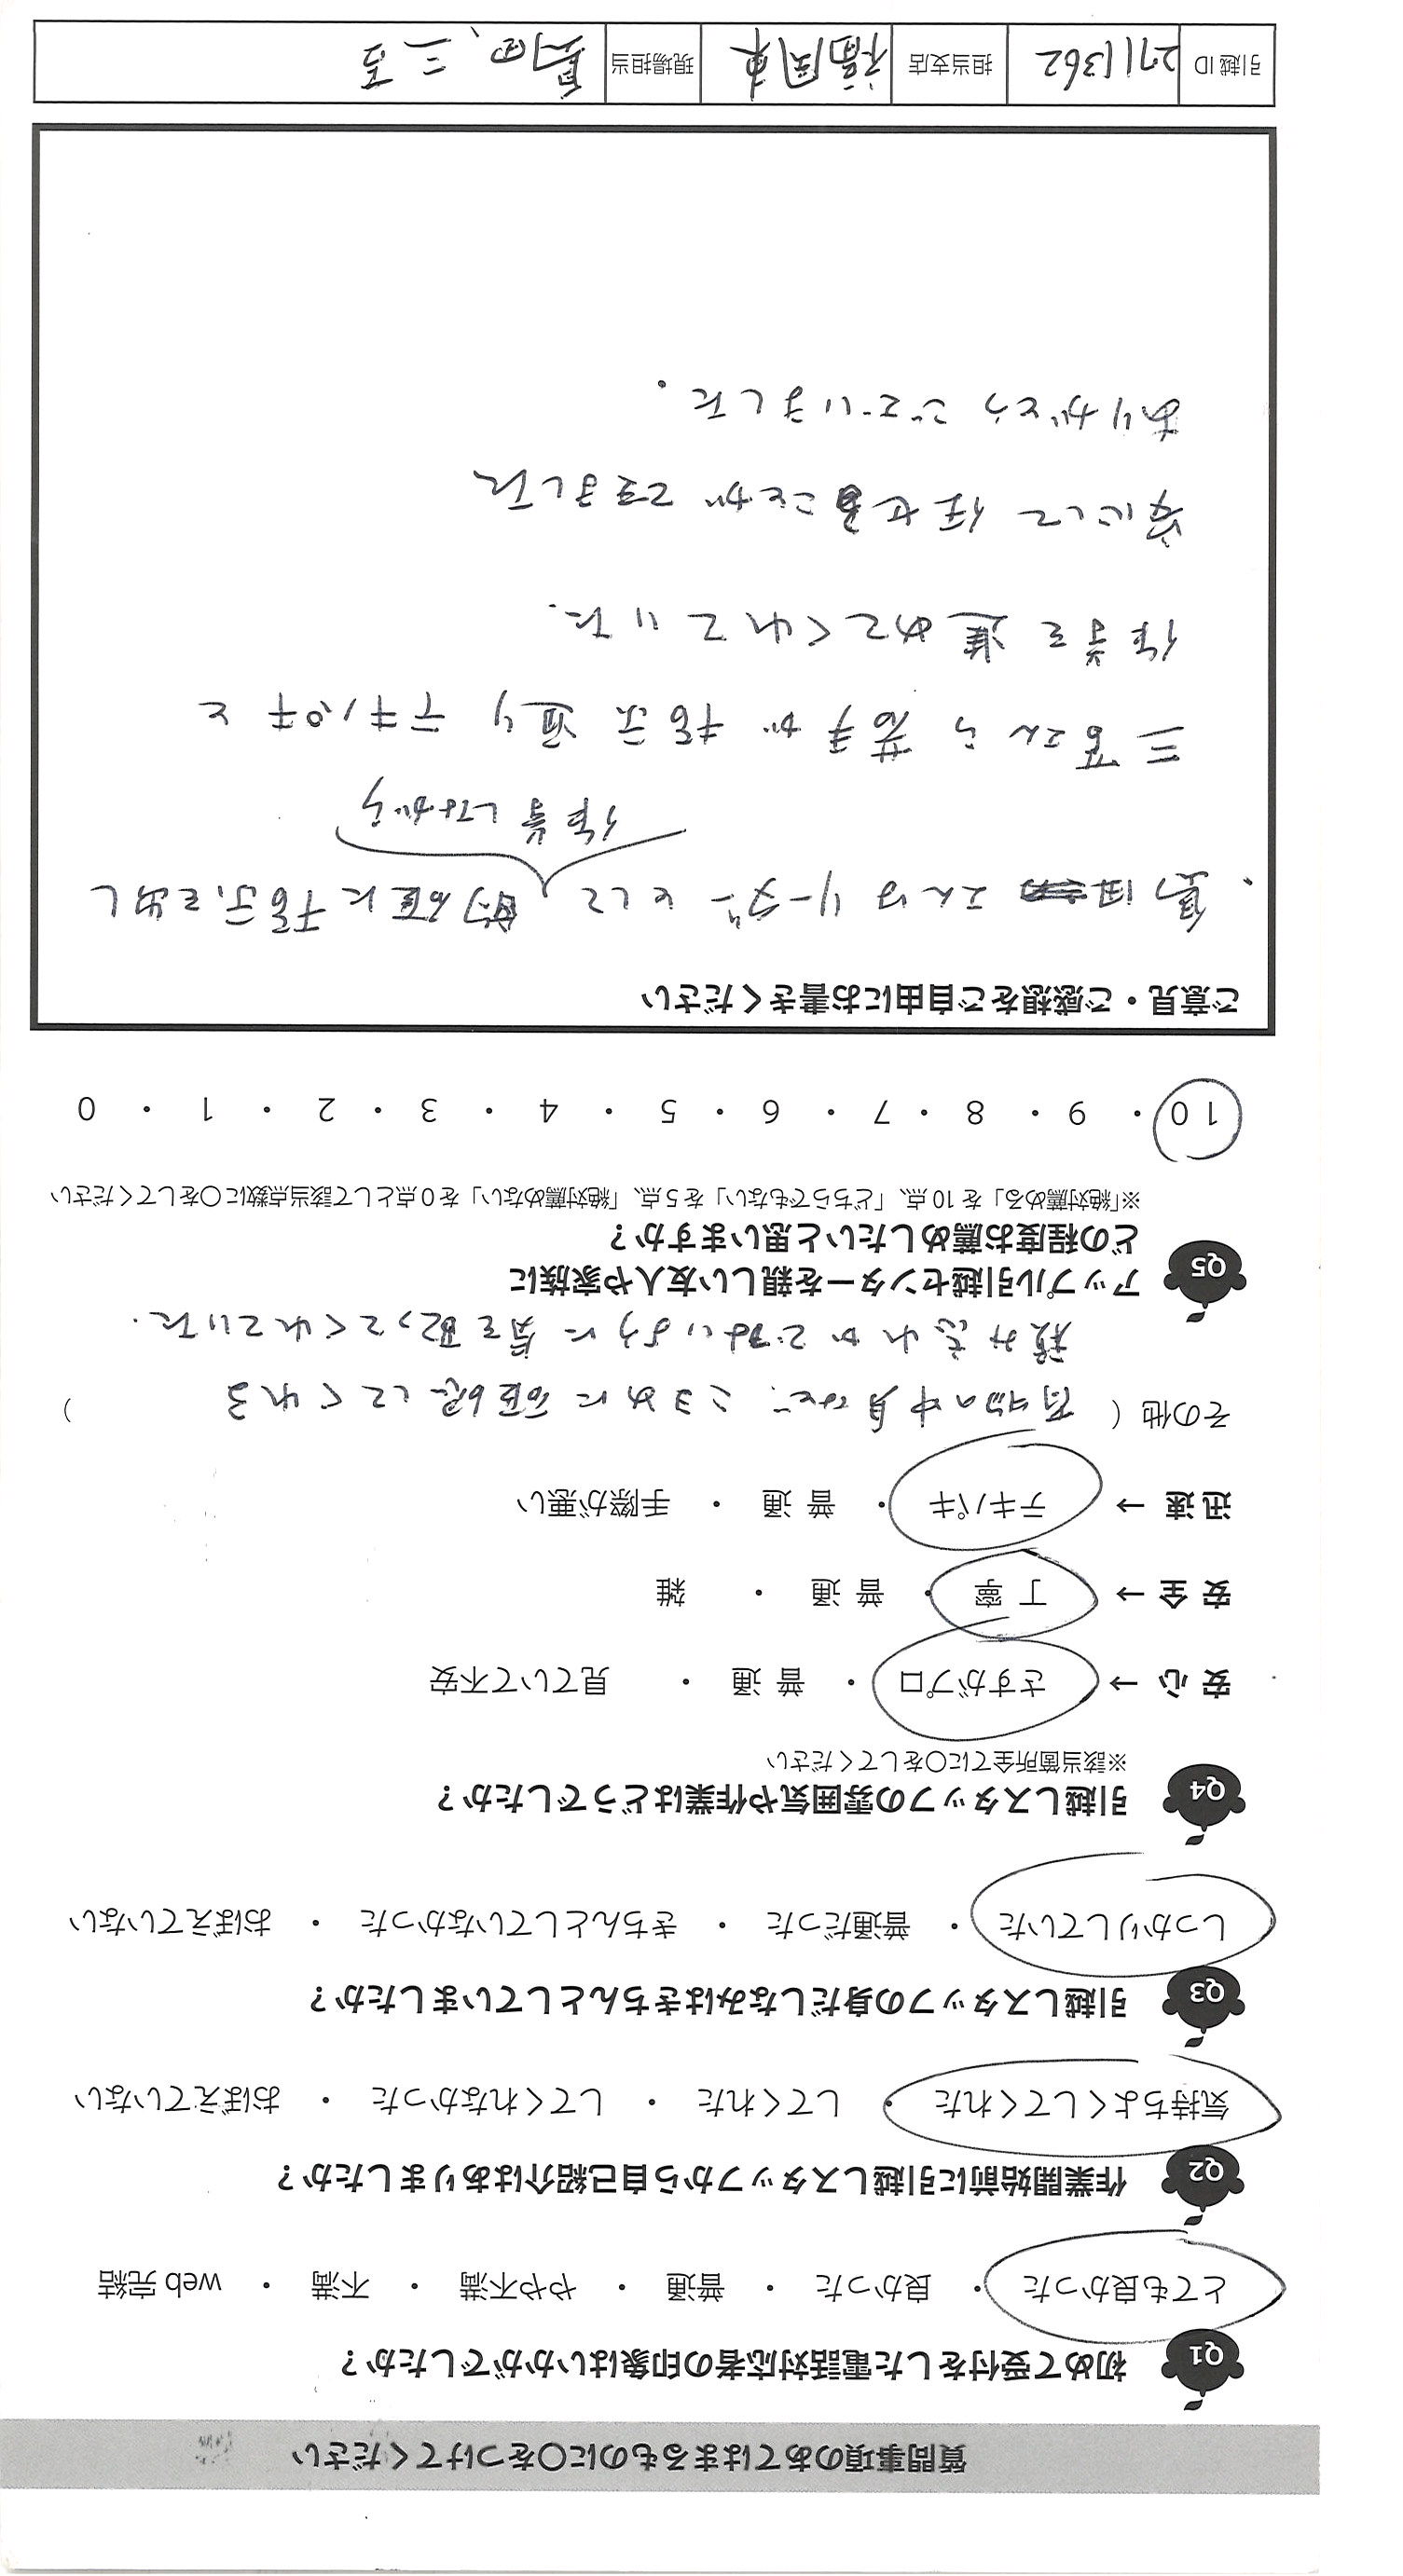 質問事項のあてはまるものに○をつけてください
Q1 初めて受付をした電話対応者の印象はいかがでしたか？
とても良かった ・ 良かった ・ 普通 ・ やや不満 ・ 不満 ・ web 完結
Q2 作業開始前に引越しスタッフから自己紹介はありましたか？
気持ちよくしてくれた ・ してくれた ・ してくれなかった ・ おぼえていない
Q3 引越しスタッフの身だしなみはきちんとしていましたか？
しっかりしていた ・ 普通だった ・ きちんとしていなかった ・ おぼえていない
Q4 引越しスタッフの雰囲気や作業はどうでしたか？
※該当箇所全てに○をしてください
安 心 → さすがプロ ・ 普 通 ・ 見ていて不安
安 全 → 丁 寧 ・ 普 通 ・ 雑
迅 速 → テキパキ ・ 普 通 ・ 手際が悪い
その他 ( 荷物の中身など、こまめに確認してくれる )
積み忘れがでないように気を配ってくれていた.
Q5 アップル引越センターを親しい友人や家族に
どの程度お薦めしたいと思いますか？
※「絶対薦める」を 10 点、「どちらでもない」を 5 点、「絶対薦めない」を 0 点として該当点数に○をしてください
10 ・ 9 ・ 8 ・ 7 ・ 6 ・ 5 ・ 4 ・ 3 ・ 2 ・ 1 ・ 0
ご意見・ご感想をご自由にお書きください
・ 島田さんは リーダーとして 的確に指示を出し
作業しながら
三宮さんら若手が指示通りテキパキと
作業を進めてくれていた.
安心して任せることができました
ありがとうございました.
引越 ID 2711362 担当支店 福岡東 現場担当 島田、三宮